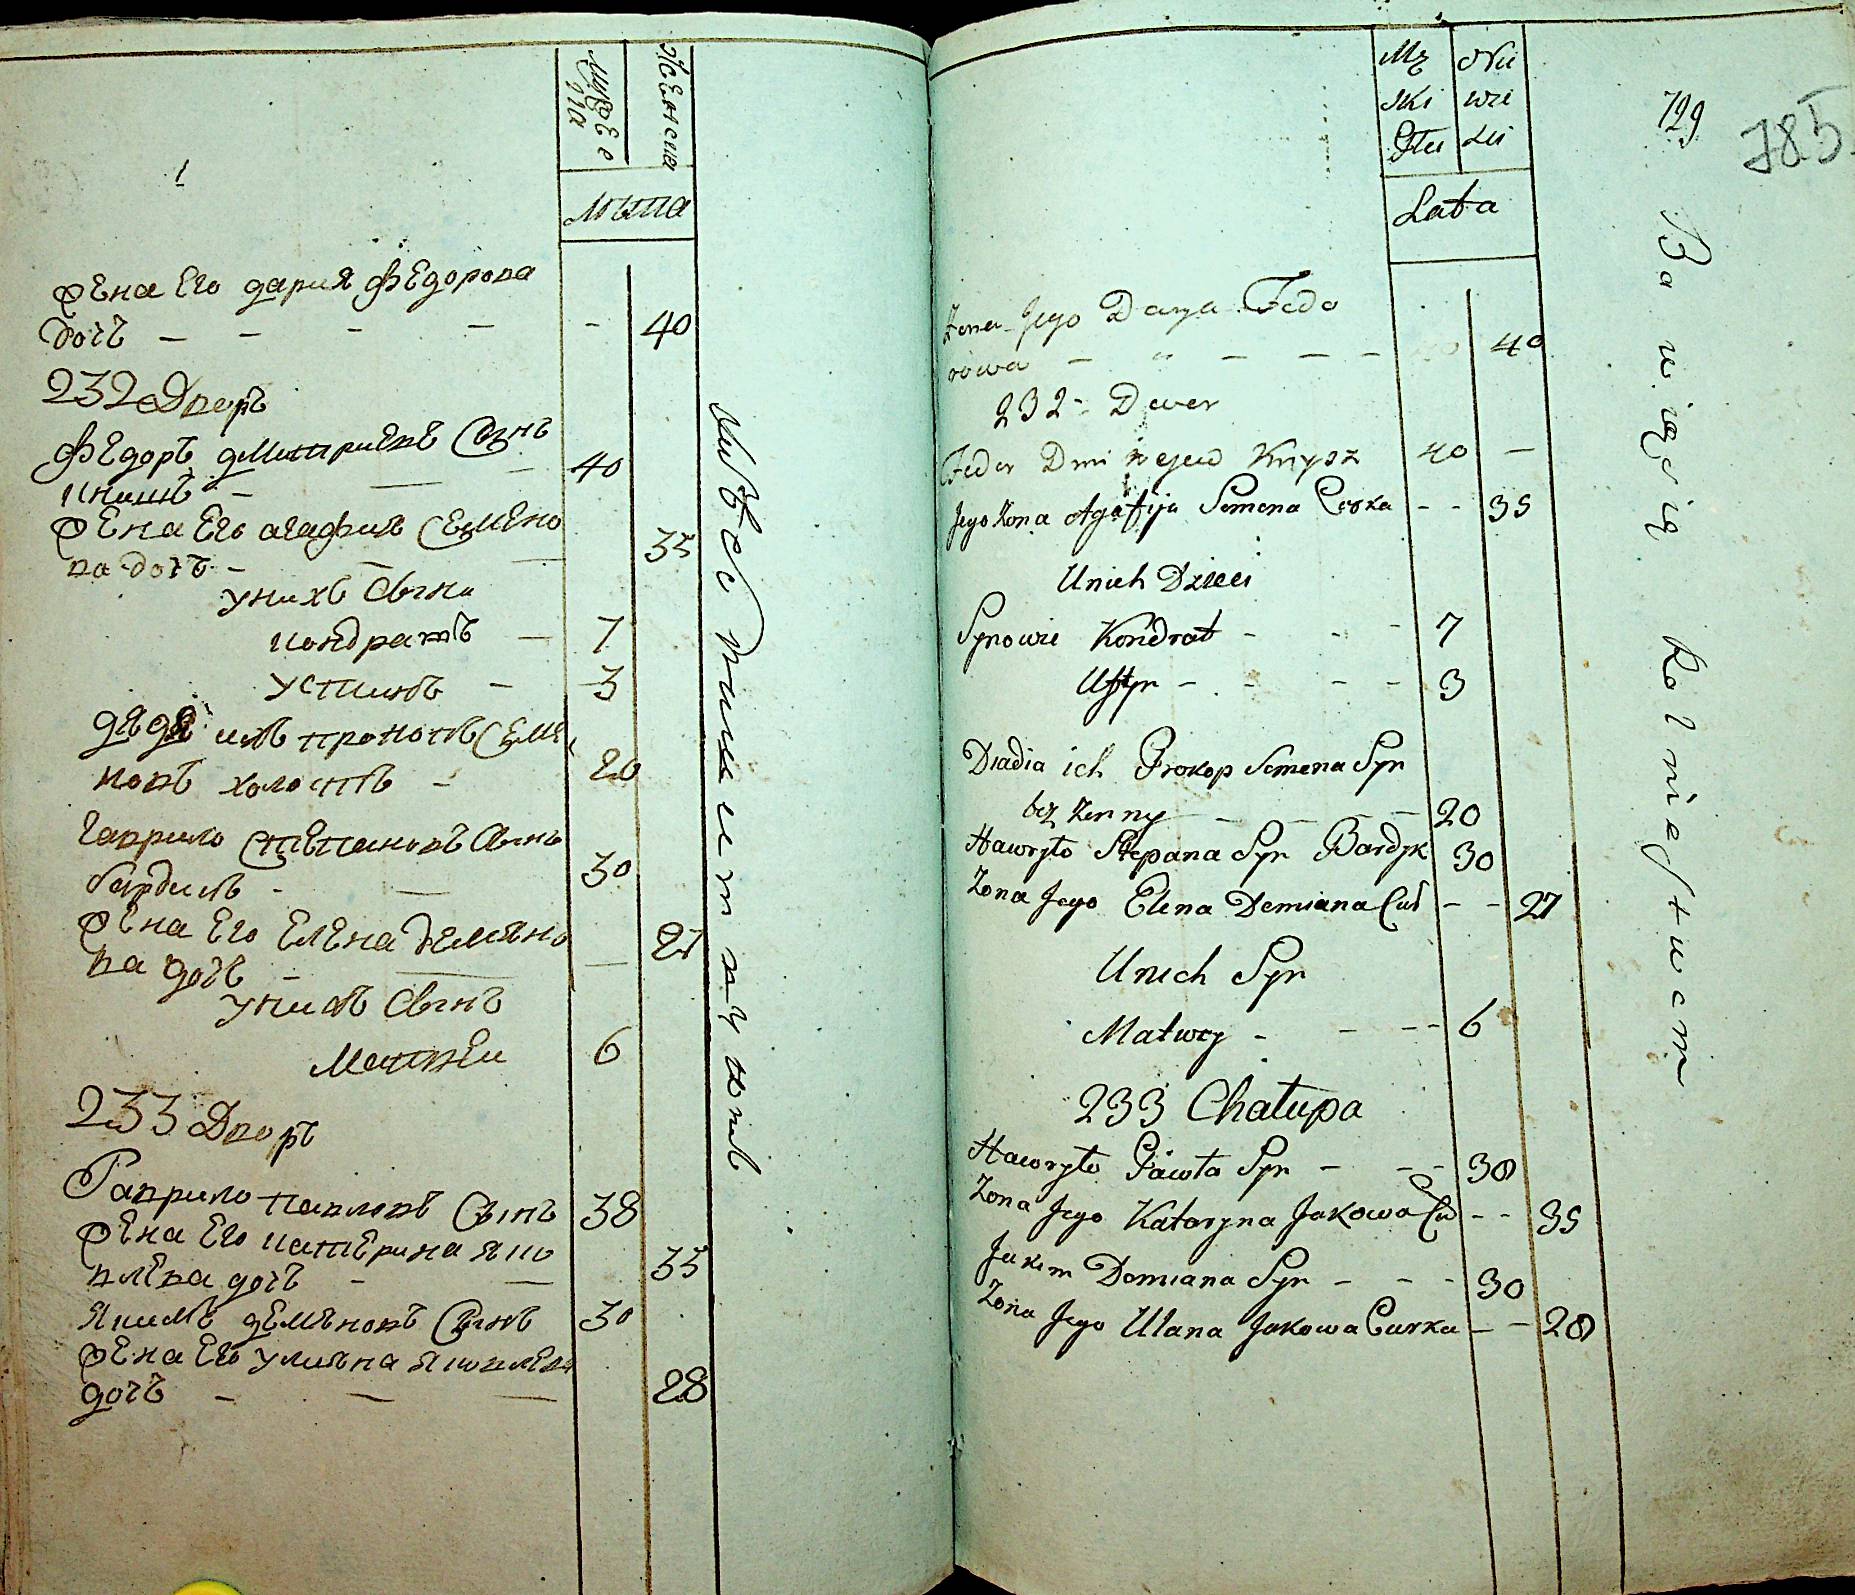 мужеска
женска
лѣта
жена его дария федорова
дочь - - - - - 40
232 Дворъ
федоръ дмитриевъ Сынъ
книшъ - - - 40
жена его агафия Семено
ва дочь - - 35
у нихъ Сыни
кондратъ - 7
устимъ - 3
дядя ихъ прокопъ Семе
новъ холостъ - 20
гаврило Степановъ Сынъ
бардикъ - - 30
жена его елена демяно
ва дочь - - 27
у нихъ Сынъ
Матвеи 6
233 Дворъ
Гаврило павловъ Сынъ 38
жена его катерина яко
влева дочь - - 35
якимъ демяновъ Сынъ 30
жена его улияна яковлева
дочь - - - 28
729
785
Mę Nie
ski wie
ście
Lata
Zona Jego Darya Fedo
rowa - - - - 40
232 - Dwor
Fedor Dmitrejew Knysz 40 -
Jego Zona Agafija Semena Corka - - 35
Unich Dzieci
Synowie Kondrat - - - 7
Ustyn - - - - 3
Diadia ich Prokop Semena Syn
bez Zenny - - - 20
Hawryło Stepana Syn Bardyk 30
Zona Jego Elena Demiana Cur - - 27
Unich Syn
Matwey - - - - 6
233 Chałupa
Hawryło Pawła Syn - - - 38
Zona Jego Kataryna Jakowa Cu - - 35
Jakim Demiana Syn - - - 30
Zona Jego Ulana Jakowa Curka - - 28
Bawią się Rolnictwem